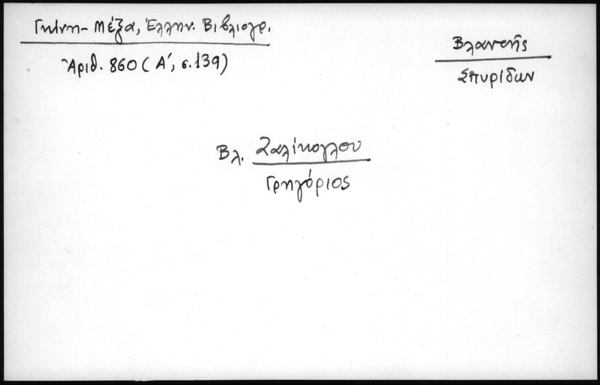 Γκίνη - Μέξα, Ἑλλην. Βιβλιογρ.
Ἀριθ. 860 (Α΄, σ. 139)
Βλαντῆς
Σπυρίδων
Βλ. Ζαλίκογλου
Γρηγόριος